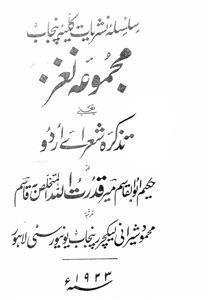 سلسلہ نشریات کلیہ پنجاب
مجموعہ نغز
یعنی
تذکرہ شعراے اردو
حکیم ابوالقاسم میر قدرت اللہ المتخلص بہ قاسم
مرتبہ
محمود شیرانی لیکچرر پنجاب یونیورسٹی لاہور
۱۹۳۳ء